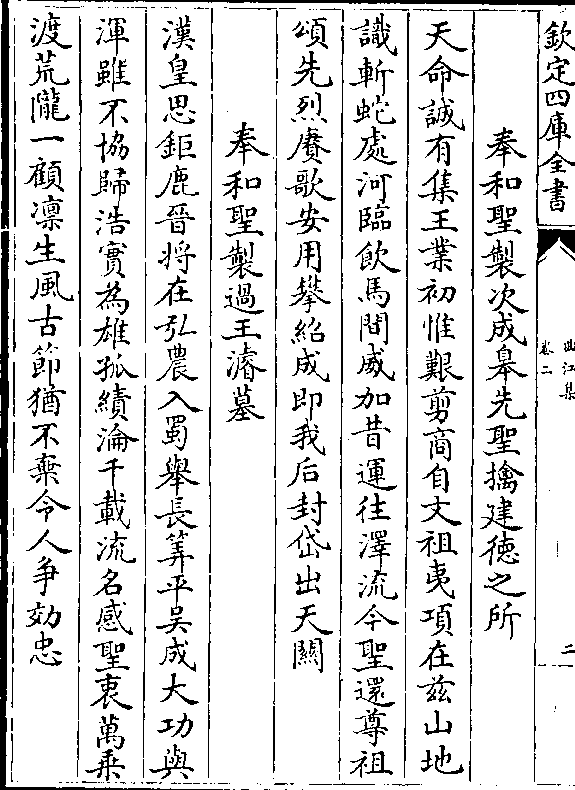 欽定四庫全書
曲江集
卷二
二
奉和聖製次成皋先聖擒建德之所
天命誠有集王業初惟艱剪商自文祖夷項在兹山地
識斬蛇處河臨飲馬間威加昔運往澤流今聖還尊祖
頌先烈賡歌安用攀紹成即我后封岱出天關
奉和聖製過王濬墓
漢皇思鉅鹿晉将在弘農入蜀舉長筭平吳成大功與
渾雖不協歸浩實為雄孤績淪千載流名感聖衷萬乗
渡荒隴一顧凛生風古節猶不棄令人争効忠